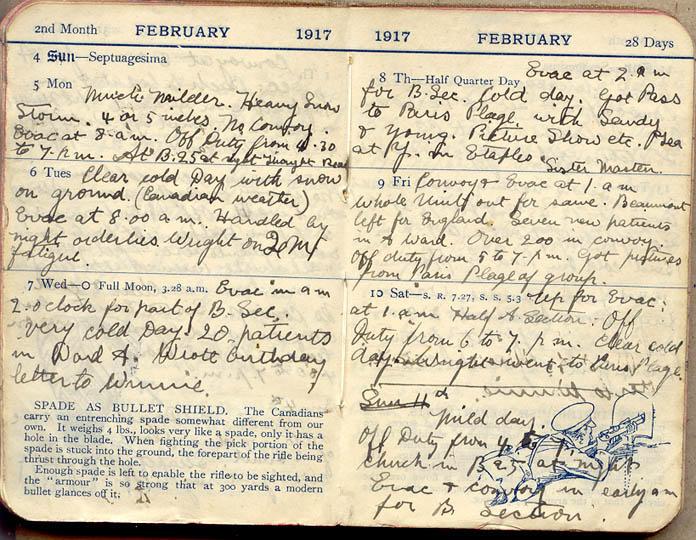 2nd Month FEBRUARY 1917
4 Sun—Septuagesima
5 Mon
Much milder. Heavy Snow
Storm. 4 or 5 inches No Convoy.
Evac at 8 a.m. Off Duty from 4.30
to 7 p.m. At B.25 at night
6 Tues Clear cold Day with snow
on ground. (Canadian weather)
Evac at 8.00 a.m. Handled by
night orderlies Wright on
fatigue.
7 Wed—O Full Moon, 3.28 a.m. Evac in am
2.oclock for part of B. Sec.
Very cold Day. 20 patients
in Ward A. Wrote birthday
letter to Winnie.
SPADE AS BULLET SHIELD. The Canadians
carry an entrenching spade somewhat different from our
own. It weighs 4 lbs., looks very like a spade, only it has a
hole in the blade. When fighting the pick portion of the
spade is stuck into the ground, the forepart of the rifle being
thrust through the hole.
Enough spade is left to enable the rifle to be sighted, and
the "armour" is so strong that at 300 yards a modern
bullet glances off it.
1917 FEBRUARY 28 Days
8 Th—Half Quarter Day Evac at 2 am
for B. Sec. Cold day. Got Pass
to Paris Plage with Sandy
& Young. Picture Show etc.
at in Etaples
Sister Masten.
9 Fri Convoy & Evac at 1. am
whole Unit out for same. Beaumont
left for England. Seven new patients
in A ward. Over 200 in convoy.
Off duty from 5 to 7 p.m. Got pictures
from Paris Plage of group.
10 Sat—S. R. 7.27, S. S. 5.3 up for Evac:
at 1. am Half A. Section. Off
Duty from 6 to 7. p.m. Clear cold
day. went to Paris Plage.
Sun 11th
Mild day.
Off Duty from 4
church in B 25 at night
Evac & convoy in early am
for B Section.